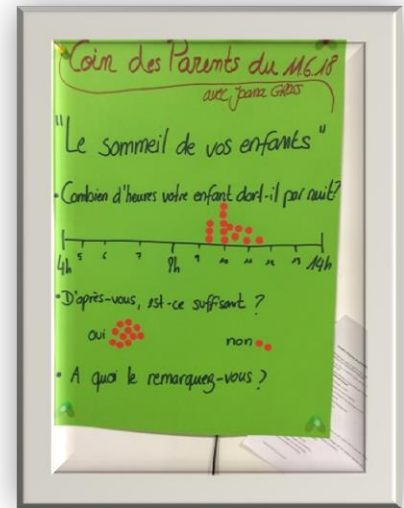 Coin des Parents du 11.6.18
avec Joana GROSS
"Le sommeil de vos enfants"
• Combien d'heures votre enfant dort-il par nuit?
4h 5 6 7 8h 9 10 11 12 13 14h
• D'après-vous, est-ce suffisant ?
oui non
• A quoi le remarquez-vous ?